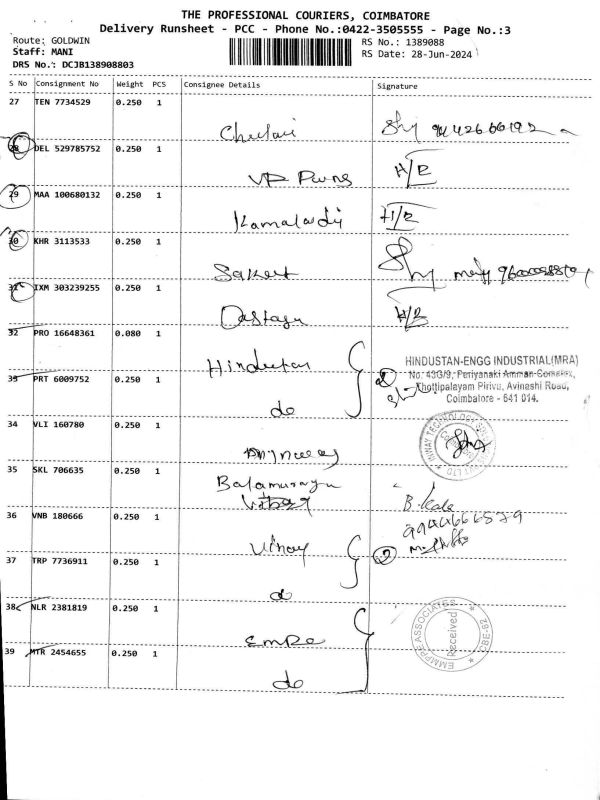 THE PROFESSIONAL COURIERS, COIMBATORE
Delivery Runsheet - PCC - Phone No.:0422-3505555 - Page No.:3
Route: GOLDWIN
RS No.: 1389088
Staff: MANI
RS Date: 28-Jun-2024
DRS No.: DCJB138908803
S No Consignment No Weight PCS Consignee Details Signature
27 TEN 7734529 0.250 1
28 DEL 529785752 0.250 1
H/R
29 MAA 100680132 0.250 1
H/R
30 KHR 3113533 0.250 1
Saket
31 IXM 303239255 0.250 1
H/R
32 PRO 16648361 0.080 1
HINDUSTAN-ENGG INDUSTRIAL(MRA)
No. 433/9, Periyanaki Amman Complex,
Thottipalayam Pirivu, Avinashi Road,
Coimbatore - 641 014.
33 PRT 6009752 0.250 1
do
34 VLI 160780 0.250 1
35 SKL 706635 0.250 1
Balamurugan
B. Kala
36 VNB 180666 0.250 1
9944666579
Vinay
2
37 TRP 7736911 0.250 1
do
38 NLR 2381819 0.250 1
EMMPPE ASSOCIATES
Received
CBE-62
39 MTR 2454655 0.250 1
do